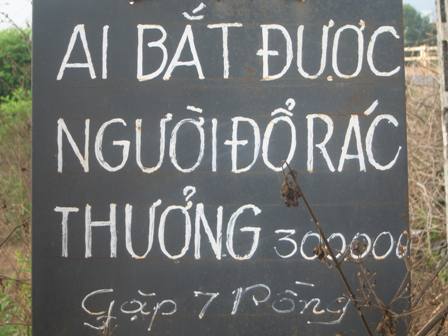 AI BẮT ĐƯỢC
NGƯỜI ĐỔ RÁC
THƯỞNG 300000
Gặp 7 Pồng